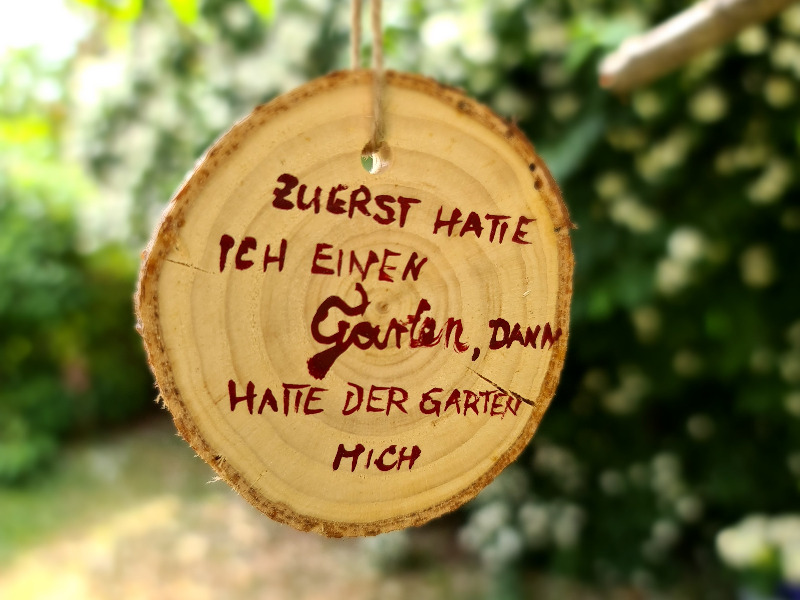 ZUERST HATTE
ICH EINEN
Garten, DANN
HATTE DER GARTEN
MICH